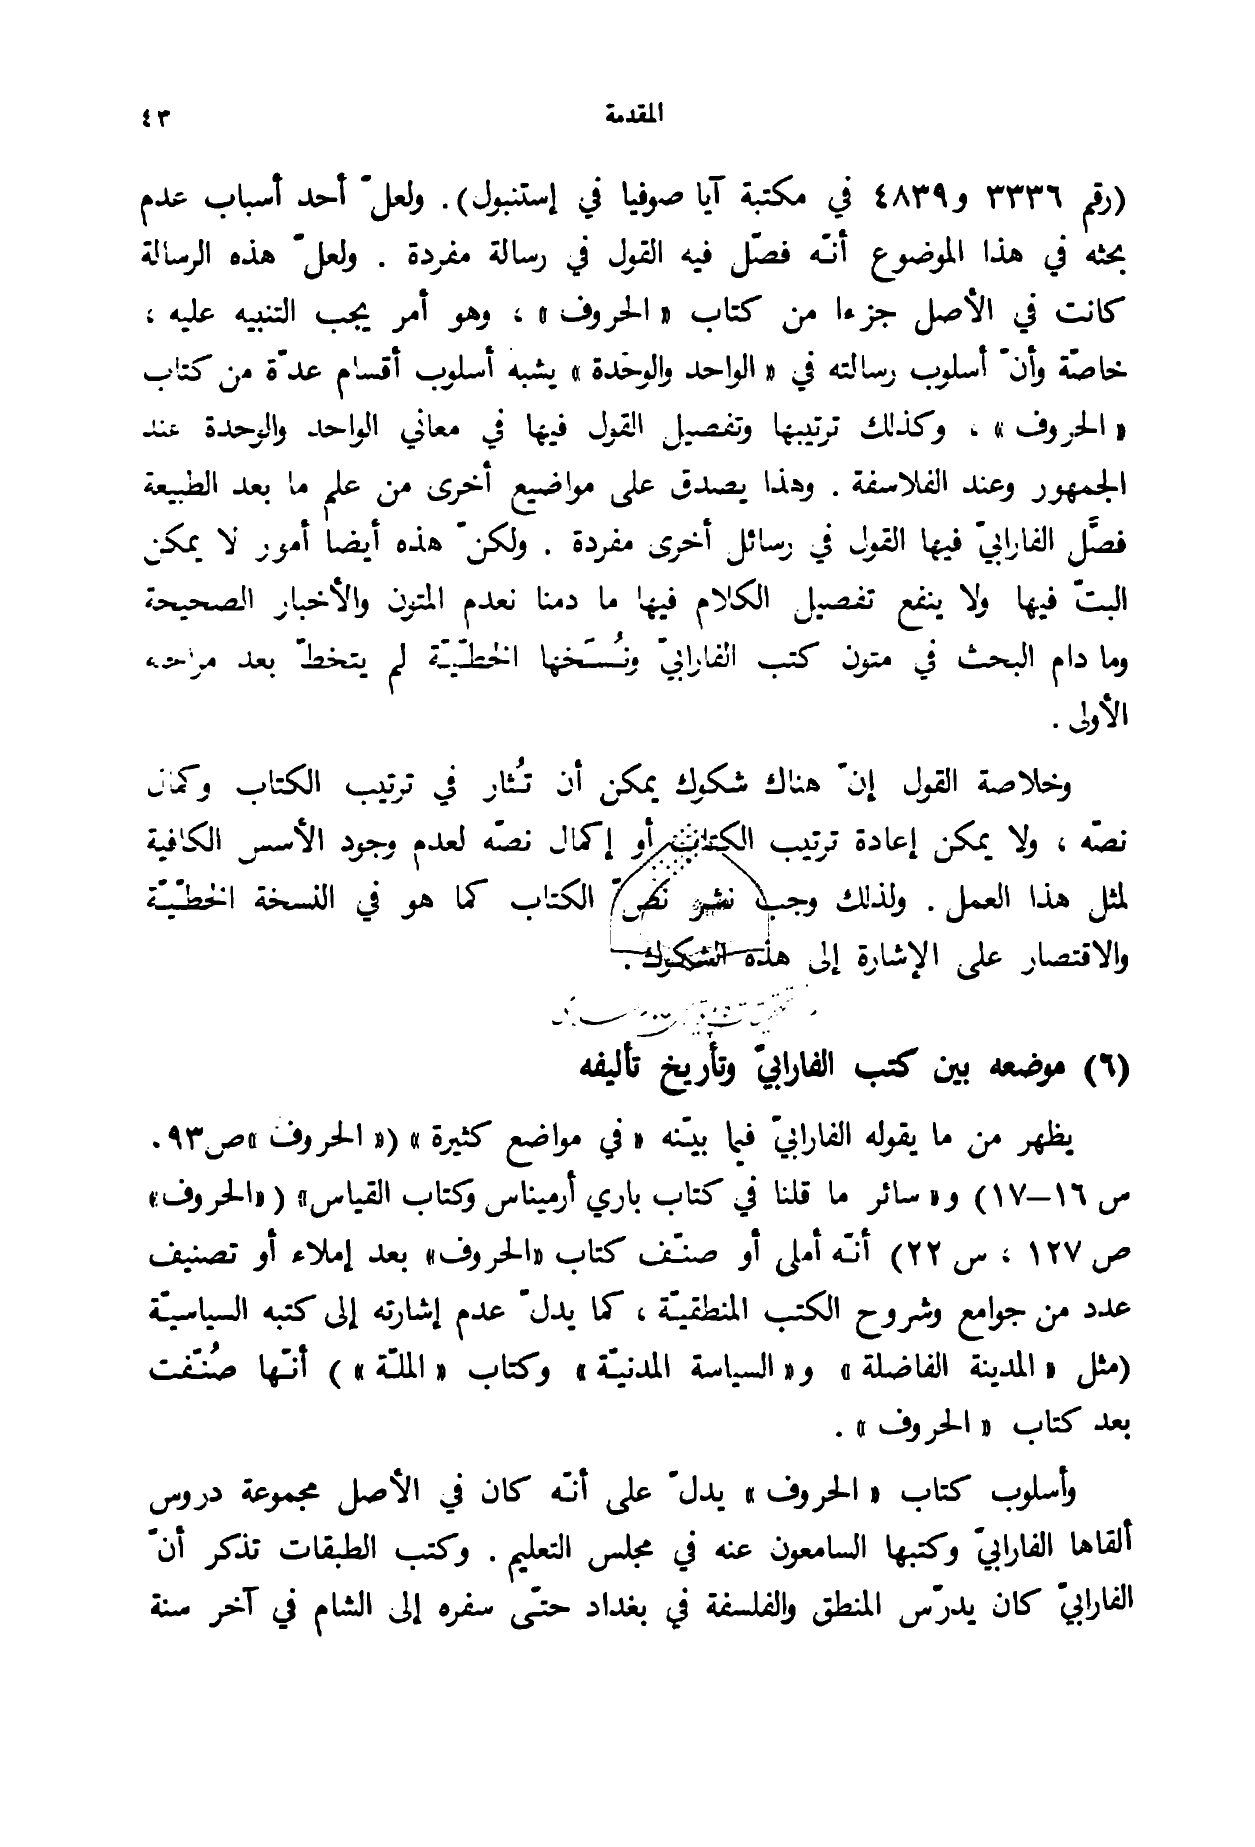 المقدمة ٤٣
(رقم ٣٣٣٦ و٤٨٣٩ في مكتبة آيا صوفيا في إستنبول). ولعلّ أحد أسباب عدم
بحثه في هذا الموضوع أنّه فصّل فيه القول في رسالة مفردة . ولعلّ هذه الرسالة
كانت في الأصل جزءا من كتاب « الحروف » ، وهو أمر يجب التنبيه عليه ،
خاصّة وأنّ أسلوب رسالته في « الواحد والوحدة » يشبه أسلوب أقسام عدّة من كتاب
« الحروف » ، وكذلك ترتيبها وتفصيل القول فيها في معاني الواحد والوحدة عند
الجمهور وعند الفلاسفة . وهذا يصدق على مواضيع أخرى من علم ما بعد الطبيعة
فصَّل الفارابيّ فيها القول في رسائل أخرى مفردة . ولكنّ هذه أيضا أمور لا يمكن
البتّ فيها ولا ينفع تفصيل الكلام فيها ما دمنا نعدم المتون والأخبار الصحيحة
وما دام البحث في متون كتب الفارابيّ ونُسَخها الخطّيّة لم يتخطّ بعد مراحله
الأولى .
وخلاصة القول إنّ هناك شكوك يمكن أن تُثار في ترتيب الكتاب وكمال
نصّه ، ولا يمكن إعادة ترتيب الكتاب أو إكمال نصّه لعدم وجود الأسس الكافية
لمثل هذا العمل . ولذلك وجب نشر نصّ الكتاب كما هو في النسخة الخطّيّة
والاقتصار على الإشارة إلى هذه الشكوك .
(٦) موضعه بين كتب الفارابيّ وتأريخ تأليفه
يظهر من ما يقوله الفارابيّ فيما بيّنه « في مواضع كثيرة » (« الحروف »ص٩٣،
س ١٦–١٧) و« سائر ما قلنا في كتاب باري أرميناس وكتاب القياس» («الحروف»
ص ١٢٧ ، س ٢٢) أنّه أملى أو صنّف كتاب «الحروف» بعد إملاء أو تصنيف
عدد من جوامع وشروح الكتب المنطقيّة ، كما يدلّ عدم إشارته إلى كتبه السياسيّة
(مثل « المدينة الفاضلة » و« السياسة المدنيّة » وكتاب « الملّة » ) أنّها صُنّفت
بعد كتاب « الحروف » .
وأسلوب كتاب « الحروف » يدلّ على أنّه كان في الأصل مجموعة دروس
ألقاها الفارابيّ وكتبها السامعون عنه في مجلس التعليم . وكتب الطبقات تذكر أنّ
الفارابيّ كان يدرّس المنطق والفلسفة في بغداد حتّى سفره إلى الشام في آخر سنة